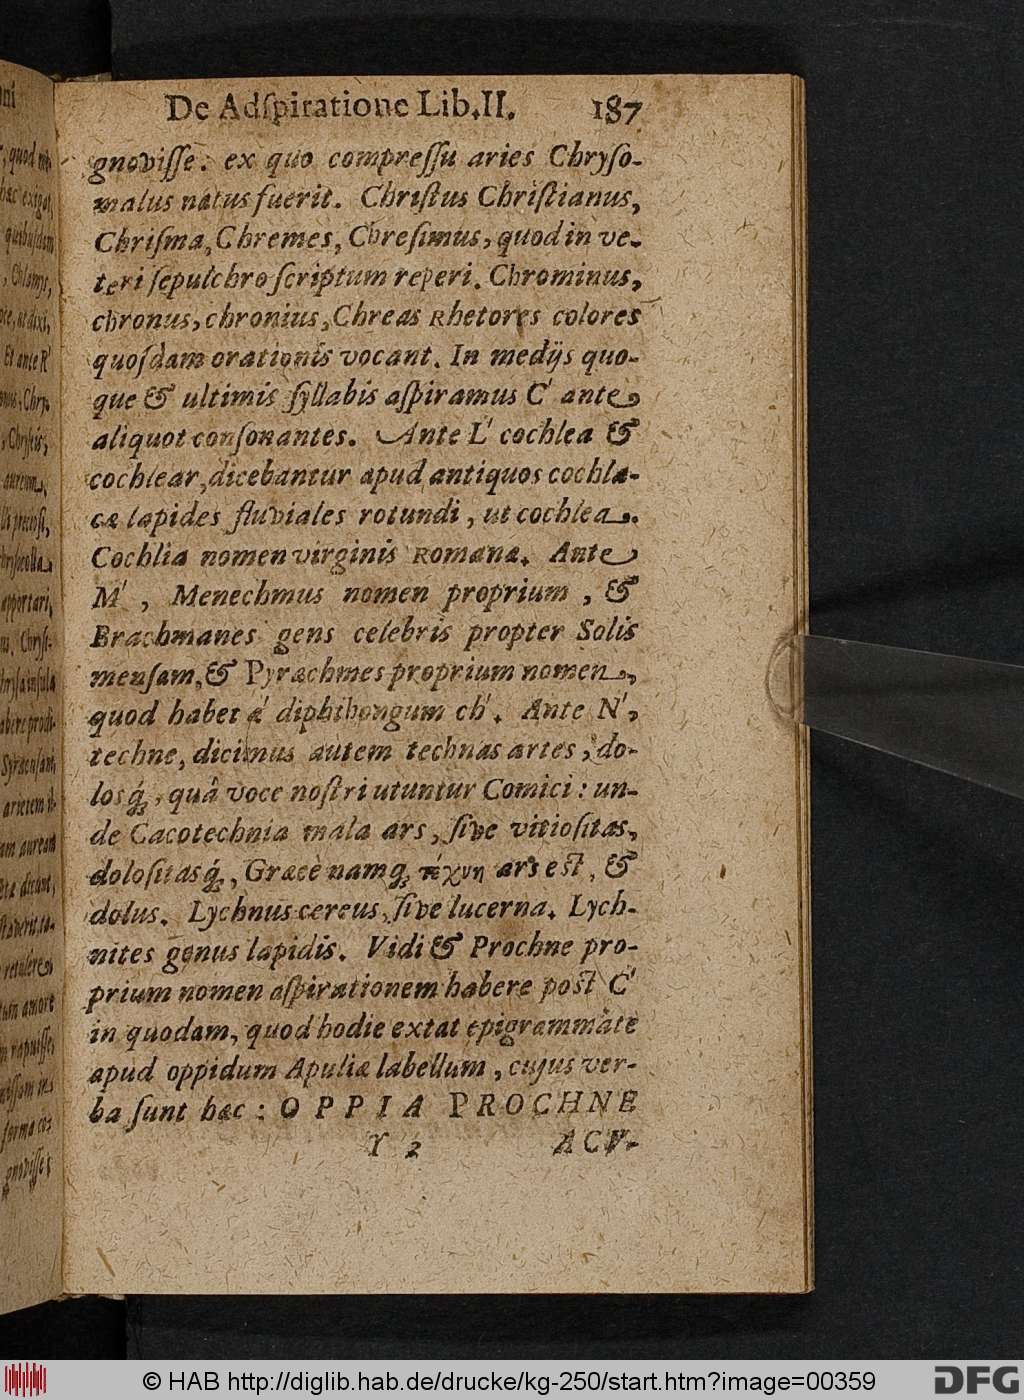 De Adſpiratione Lib.II. 187
gnoviſſe. ex quo compreſſu aries Chryſo-
malus natus fuerit. Chriſtus Chriſtianus,
Chriſma, Chremes, Chreſimus, quod in ve-
teri ſepulchro ſcriptum reperi. Chrominus,
chronus, chronius, Chreas Rhetores colores
quoſdam orationis vocant. In medijs quo-
que & ultimis ſyllabis aſpiramus C' ante
aliquot conſonantes. Ante L' cochlea &
cochlear, dicebantur apud antiquos cochla-
cæ lapides fluviales rotundi, ut cochlea.
Cochlia nomen virginis Romana. Ante
M', Menechmus nomen proprium, &
Brachmanes gens celebris propter Solis
menſam, & Pyrachmes proprium nomen,
quod habet æ' diphthongum ch'. Ante N',
techne, dicimus autem technas artes, do-
losq́;, quâ voce noſtri utuntur Comici: un-
de Cacotechnia mala ars, ſive vitioſitas,
doloſitasq́;, Græcè namq; τέχνη ars eſt, &
dolus. Lychnus cereus, ſive lucerna. Lych-
nites genus lapidis. Vidi & Prochne pro-
prium nomen aſpirationem habere poſt C'
in quodam, quod hodie extat epigrammate
apud oppidum Apuliæ labellum, cujus ver-
ba ſunt hæc: OPPIA PROCHNE
Y 2 ACV-
© HAB http://diglib.hab.de/drucke/kg-250/start.htm?image=00359
DFG